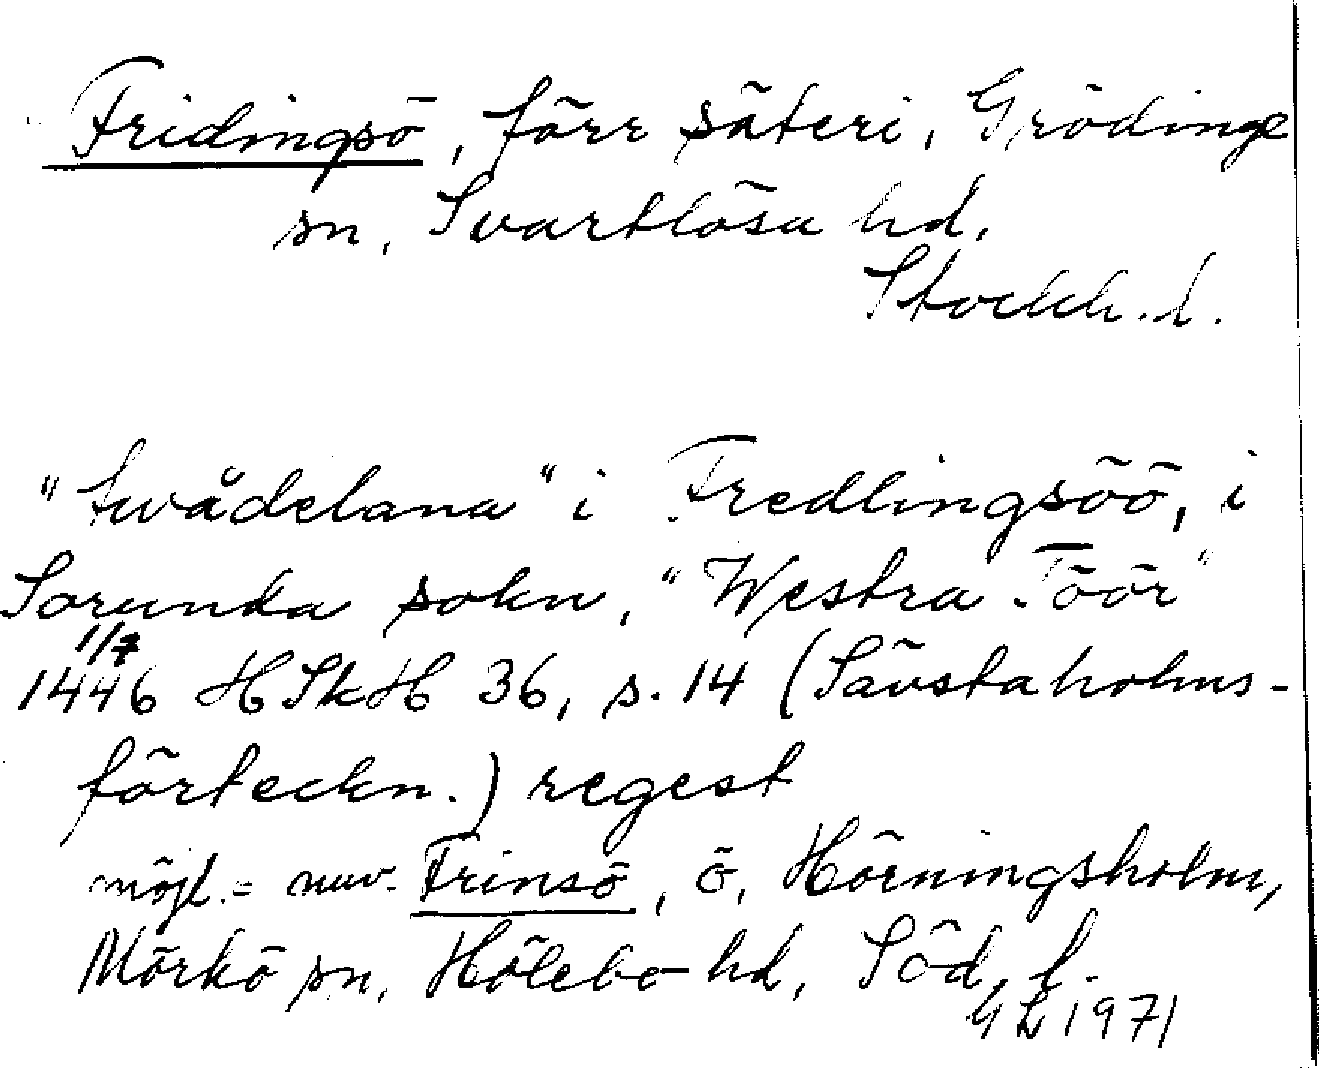 Fridingsö, förr säteri, Grödinge
sn, Svartlösa hd,
Stockh. l.
"twådelana" i Fredlingsöö, i
Sorunda sokn, "Westra Töör"
1/7
1446 HSkH 36, s. 14 (Sävstaholms-
förteckn.) regest
möjl. = nuv. Frinsö, ö, Hörningsholm,
Mörkö sn, Hölebo hd, Söd. l.
GL 1971